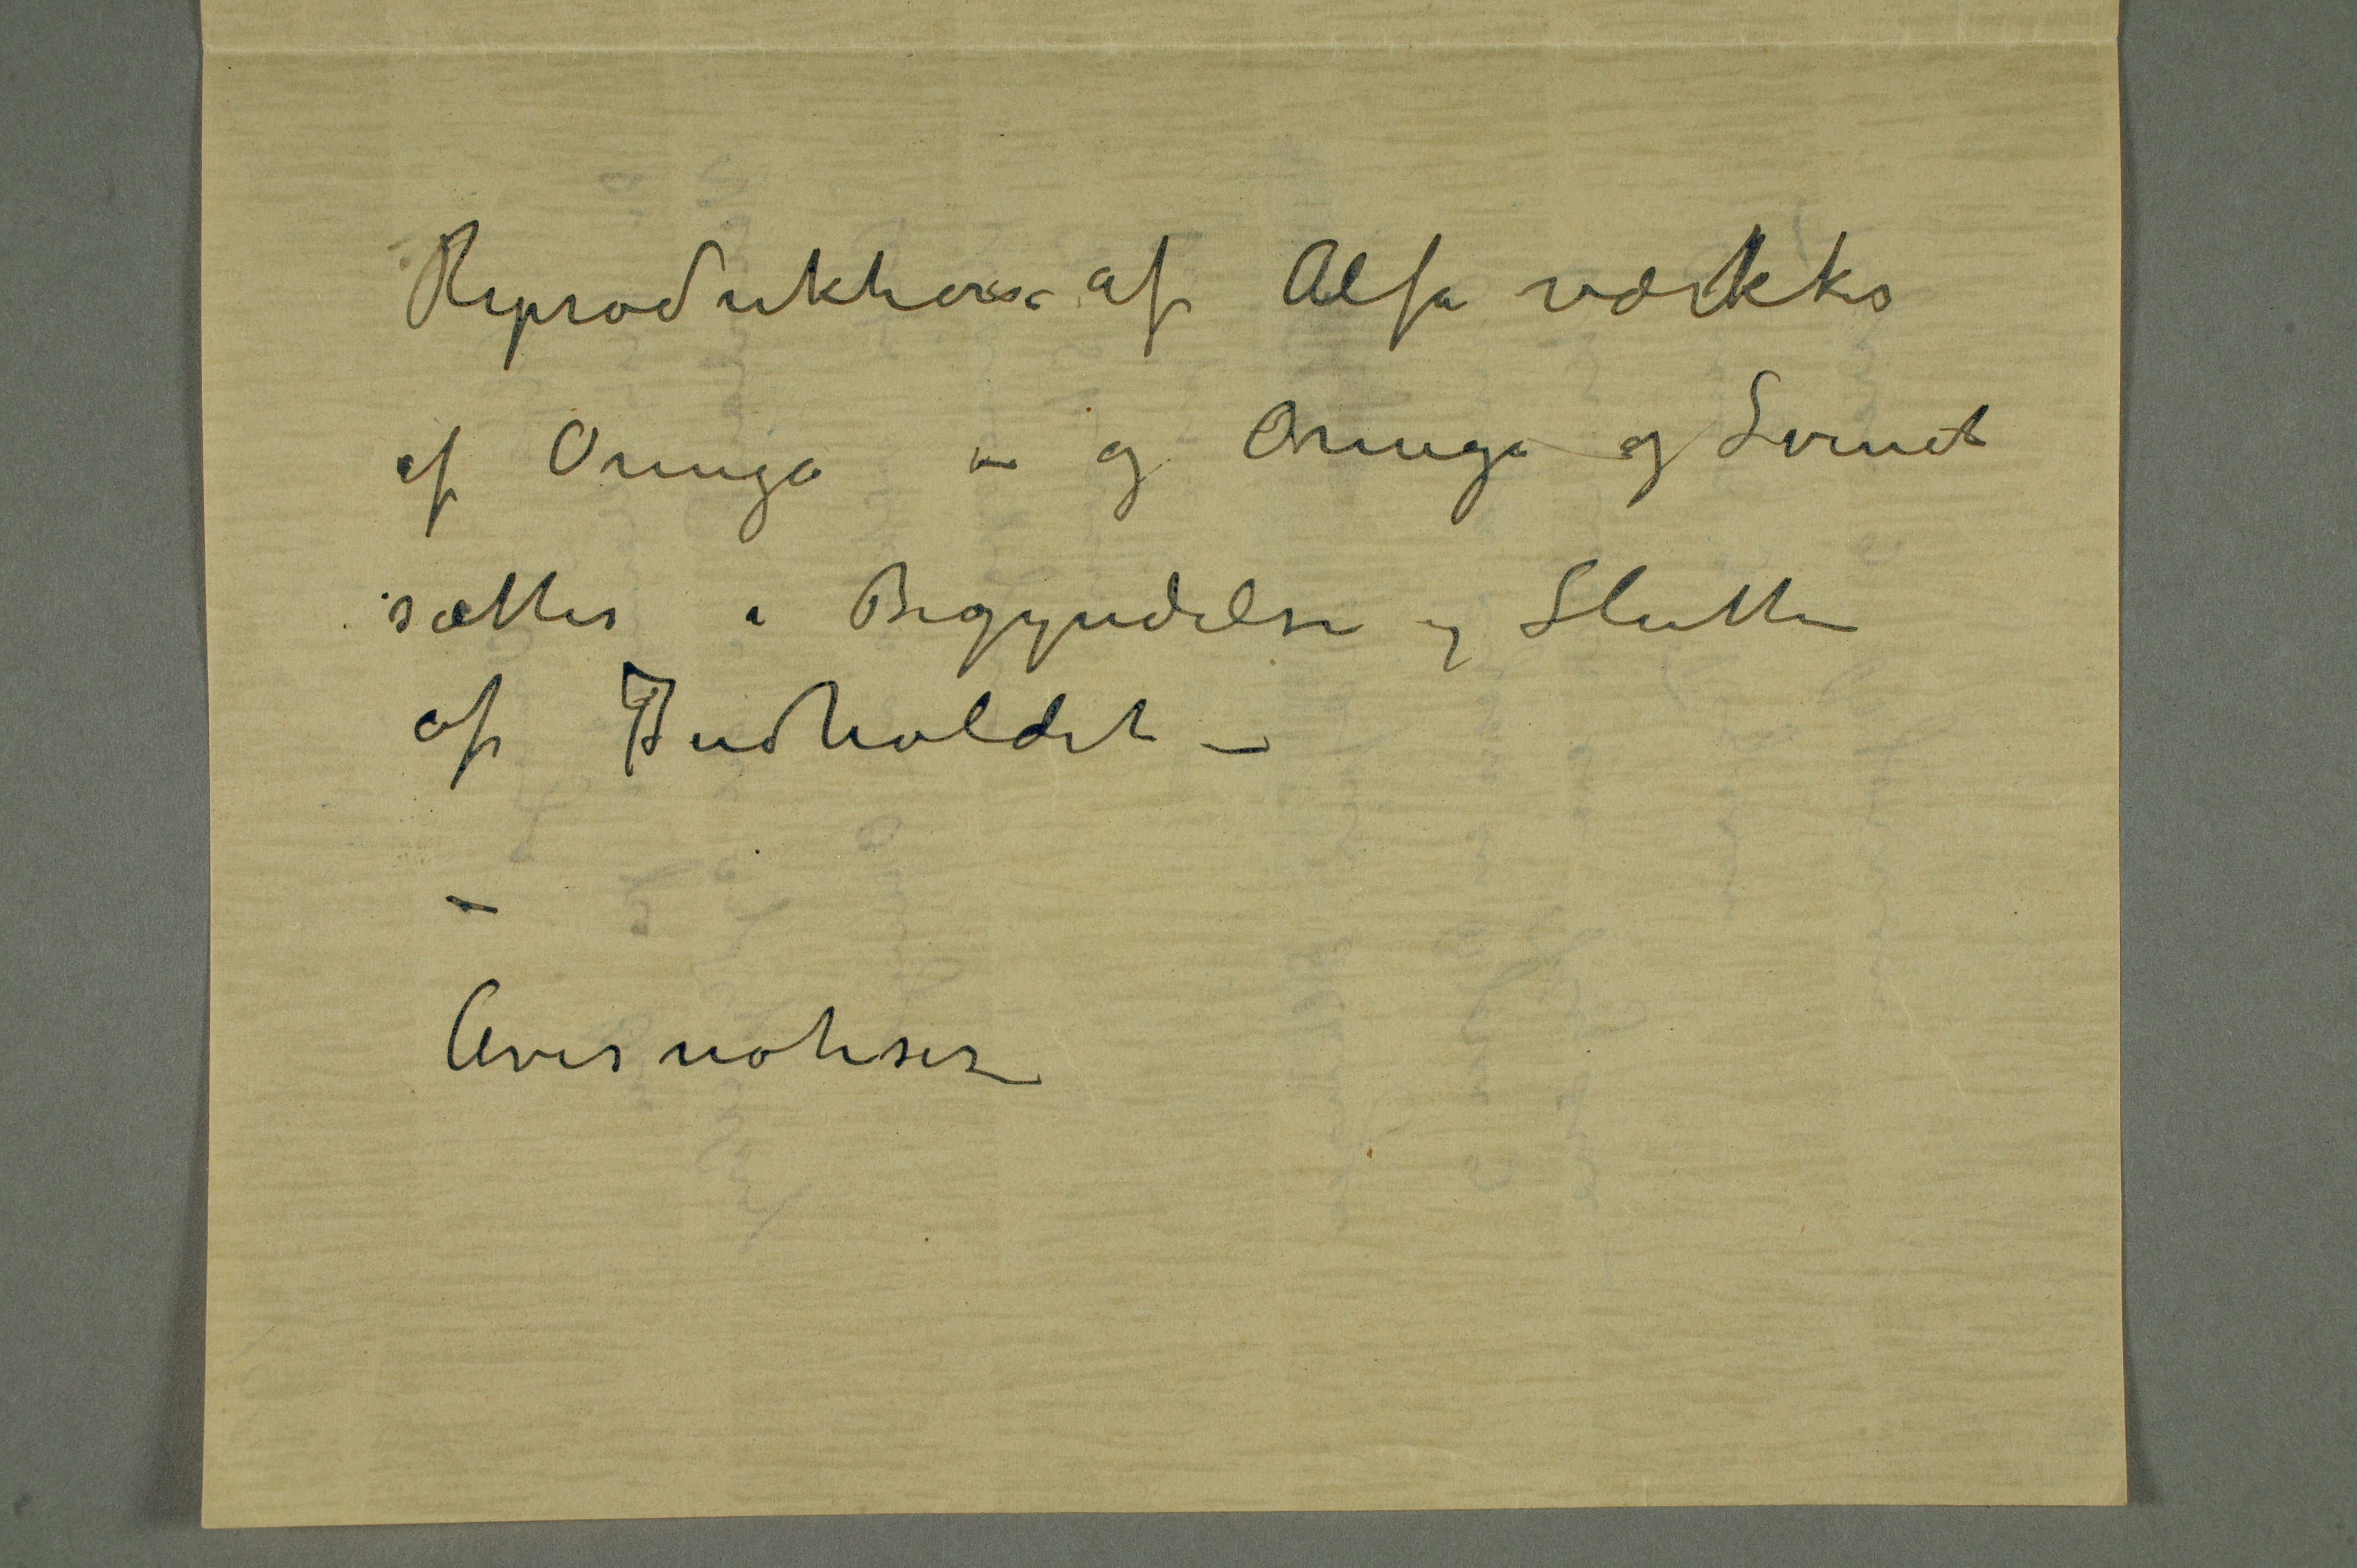 Reproduktion af Alfa vækkes
af Omega – og Omega og Svinet
sættes i Begyndelse og Slutten
af Indholdet –
–
Avisnotiser